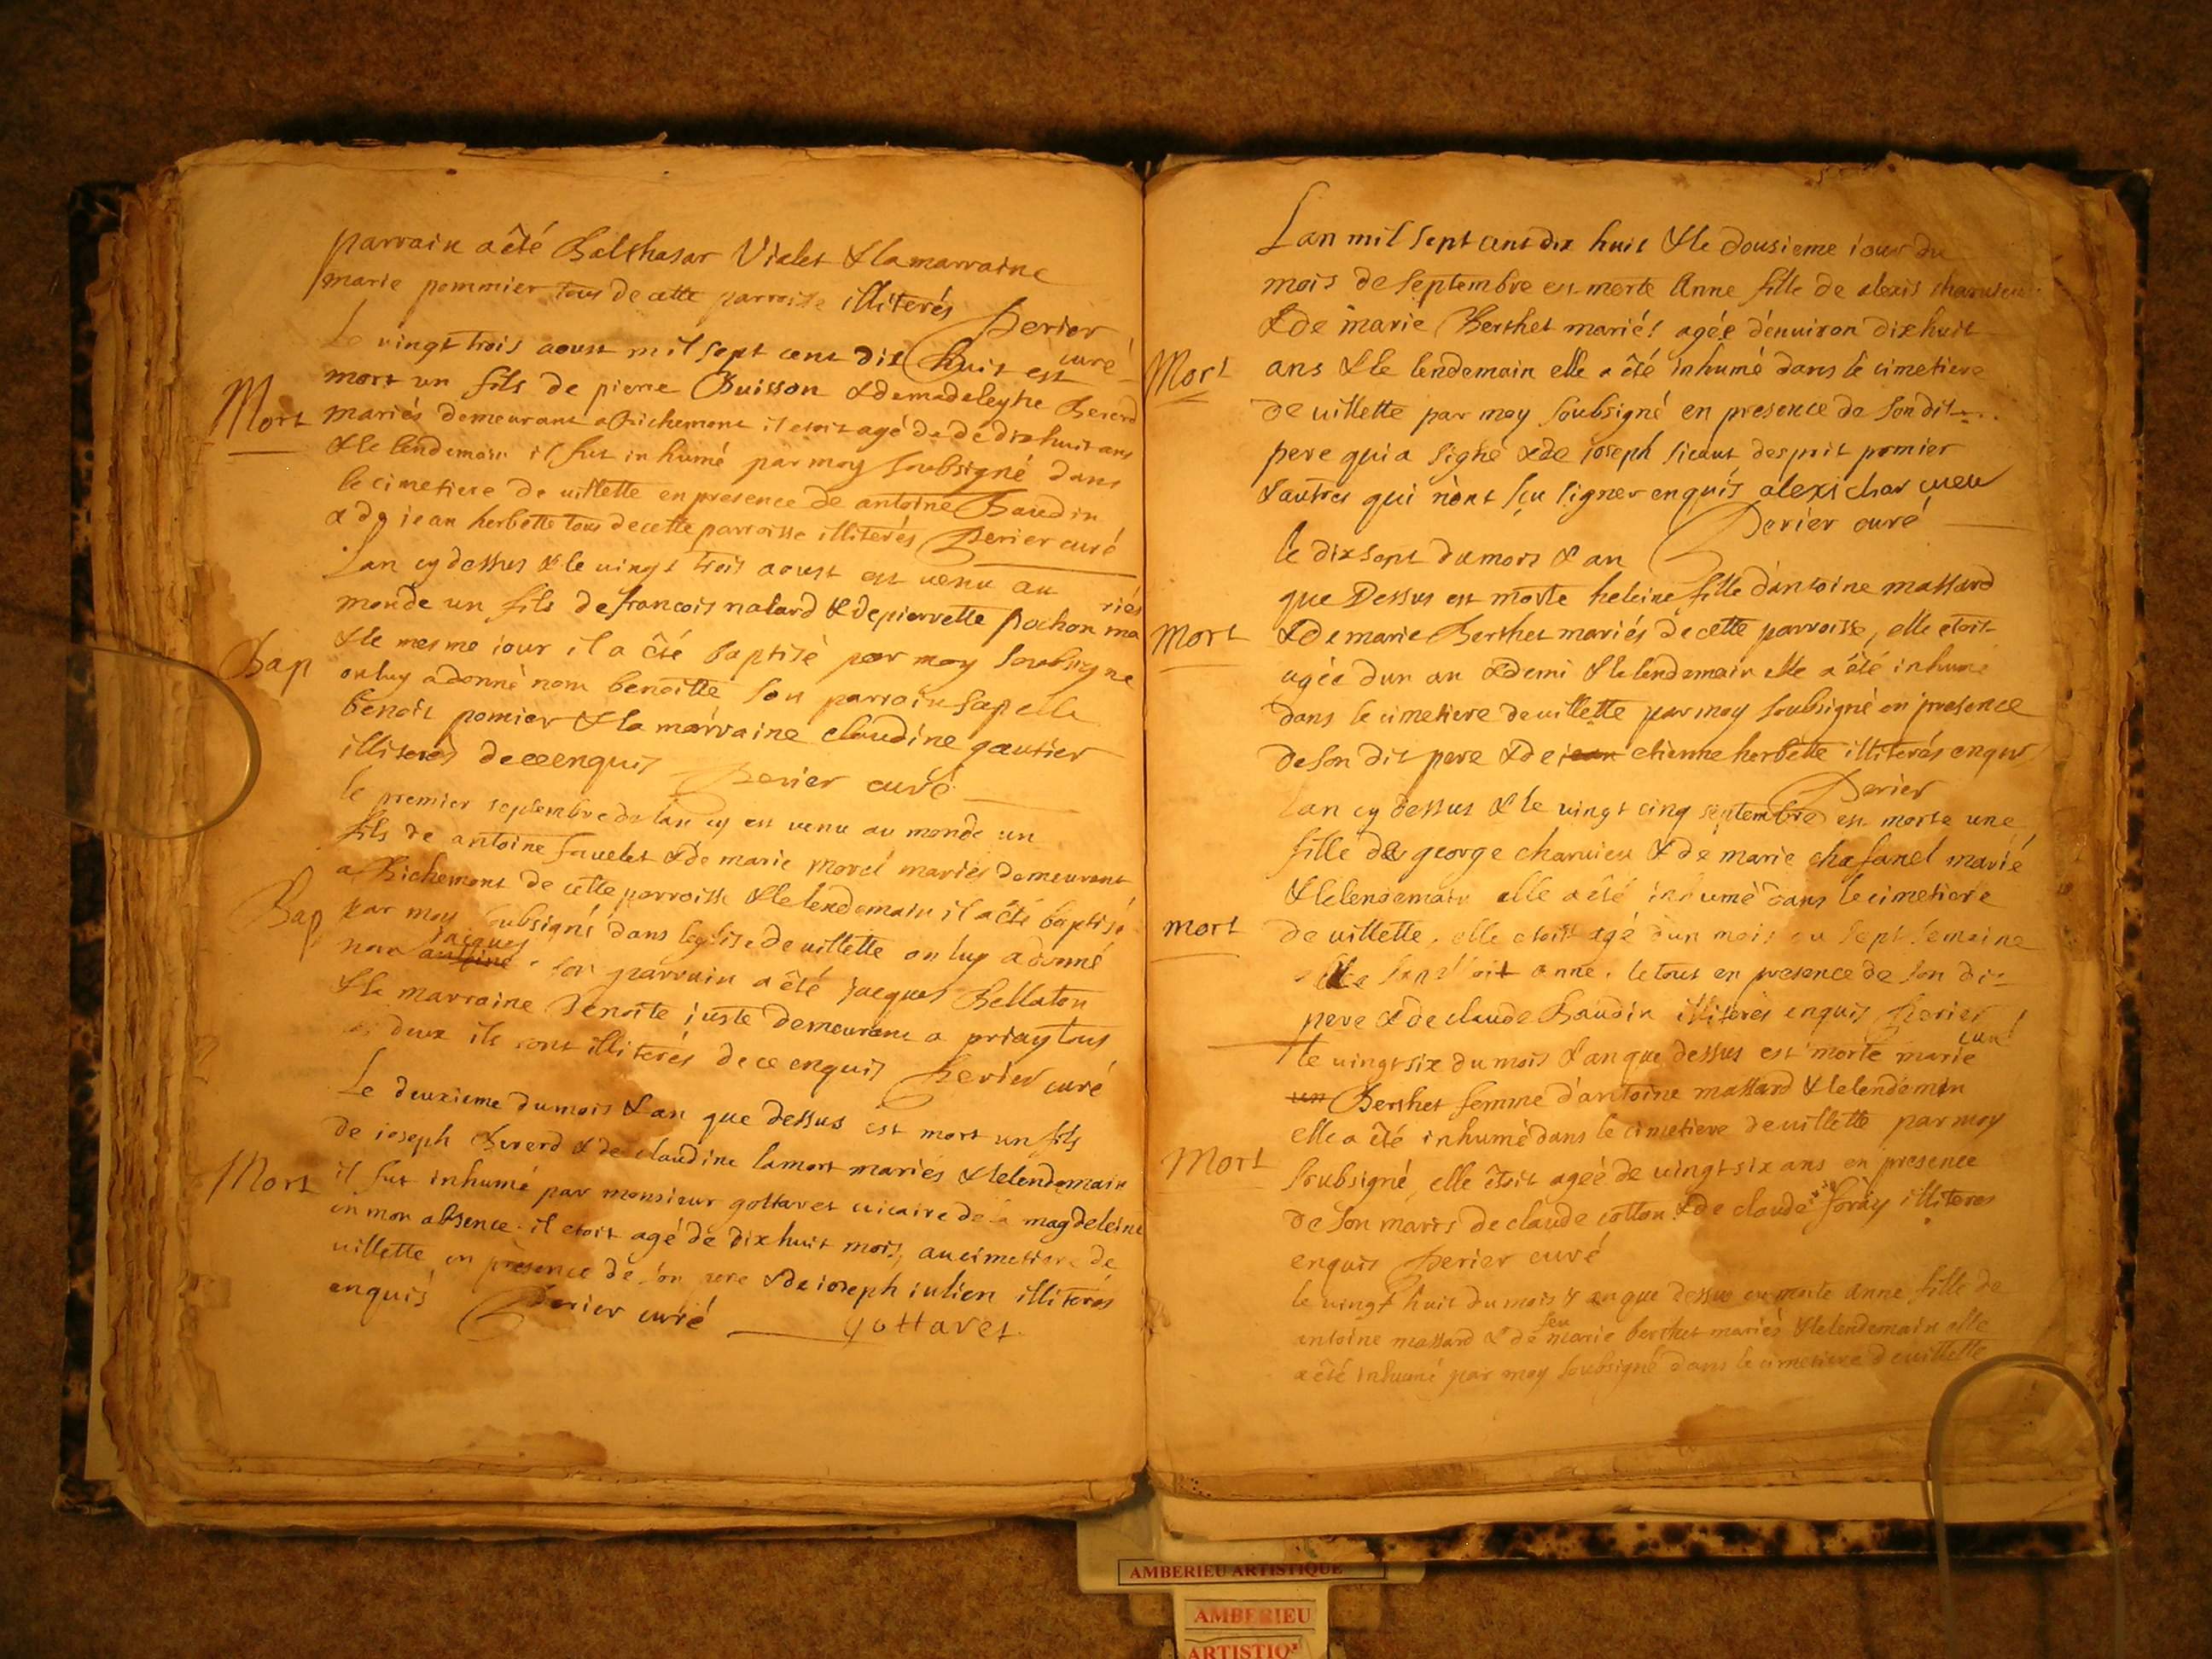 parrain a êté Balthasar Vialet & la marraine
marie pommier tous de cette parroisse illiterés
Perier
curé
Le vingt trois aoust mil sept cent dix huit est
mort un fils de pierre Buisson & de madeleyne Bererd
Mort
mariés demeurant a Richemont il etoit agé de de dixhuit ans
& le lendemain il fut inhumé par moy soubsigné dans
le cimetiere de uillette en presence de antoine Baudin
& de jean herbette tous de cette parroisse illiterés Perier curé
Lan cy dessus & le uingt trois aoust est uenu au
monde un fils de francois nalard & de pierrette pochon ma
riés
& le mesme iour il a êté baptisé par moy soubsigné
Bap
on luy a donné nom benoitte son parrain sapelle
benoit pomier & la marraine claudine gautier
illiterés de ce enquis Perier curé
le premier septembre de lan cy est uenu au monde un
fils de antoine fauelet & de marie morel mariés demeurant
a Richemont de cette parroisse & le lendemain il a êté baptisé
Bap
par moy soubsigné dans leglise de uillette on luy a donné
jacques
nom antoine son parrain a êté jacques Bellaton
& la marraine Benoite juste demeurant a priay tous
deux ils sont illiterés de ce enquis Perier curé
Le deuxieme du mois & an que dessus est mort un fils
de ioseph Bererd & de claudine lamort mariés & le lendemain
Mort
il fut inhumé par monsieur gottaret uicaire de la magdeleine
en mon absence. il etoit agé de dix huit mois, au cimetiere de
uillette en presence de son pere & de ioseph iulien illiterés
enquis Perier curé gottaret
Lan mil sept cent dix huit & le dousieme iour du
mois de septembre est morte Anne fille de alexis charuieu
& de marie Berthet mariés agée denuiron dixhuit
Mort
ans & le lendemain elle a êté inhumé dans le cimetiere
de uillette par moy soubsigné en presence de son dit
pere qui a signé & de ioseph sicaut desprit promier
& autres qui n'ont sçu signer enquis alexi char uieu
Perier curé
le dix sept du mois & an
que Dessus est morte heleine fille dantoine massard
Mort
& de marie Berthet mariés de cette parroisse, elle etoit
agée dun an & demi & le lendemain elle a êté inhumé
dans le cimetiere de uillette par moy soubsigné en presence
de son dit pere & de jean etienne herbette illiterés enquis
Perier
lan cy dessus & le uingt cinq septembre est morte une
fille de george charuieu & de marie chafanel marié
& le lendemain elle a êté inhumé dans le cimetiere
mort
de uillette, elle etoit agé dun mois ou sept semaine
anne. le tous en presence de son dit
pere & de claude Baudin illiterés enquis Perier
curé
le uingt six du mois & an que dessus est morte marie
un Berthet femme d'antoine massard & le lendemin
elle a êté inhumé dans le cimetiere de uillette par moy
Mort
soubsigné, elle êtoit ageé de uingt six ans en presence
de son maris de claude cotton & de claude foray illiteres
enquis Perier curé
le uingt huit du mois & an que dessus est morte anne fille de
feu
antoine massard & de marie berthet mariés & le lendemain elle
a êté inhumé par moy soubsigné dans le cimetiere de uillette
AMBERIEU ARTISTIQUE
AMBERIEU
ARTISTIQ